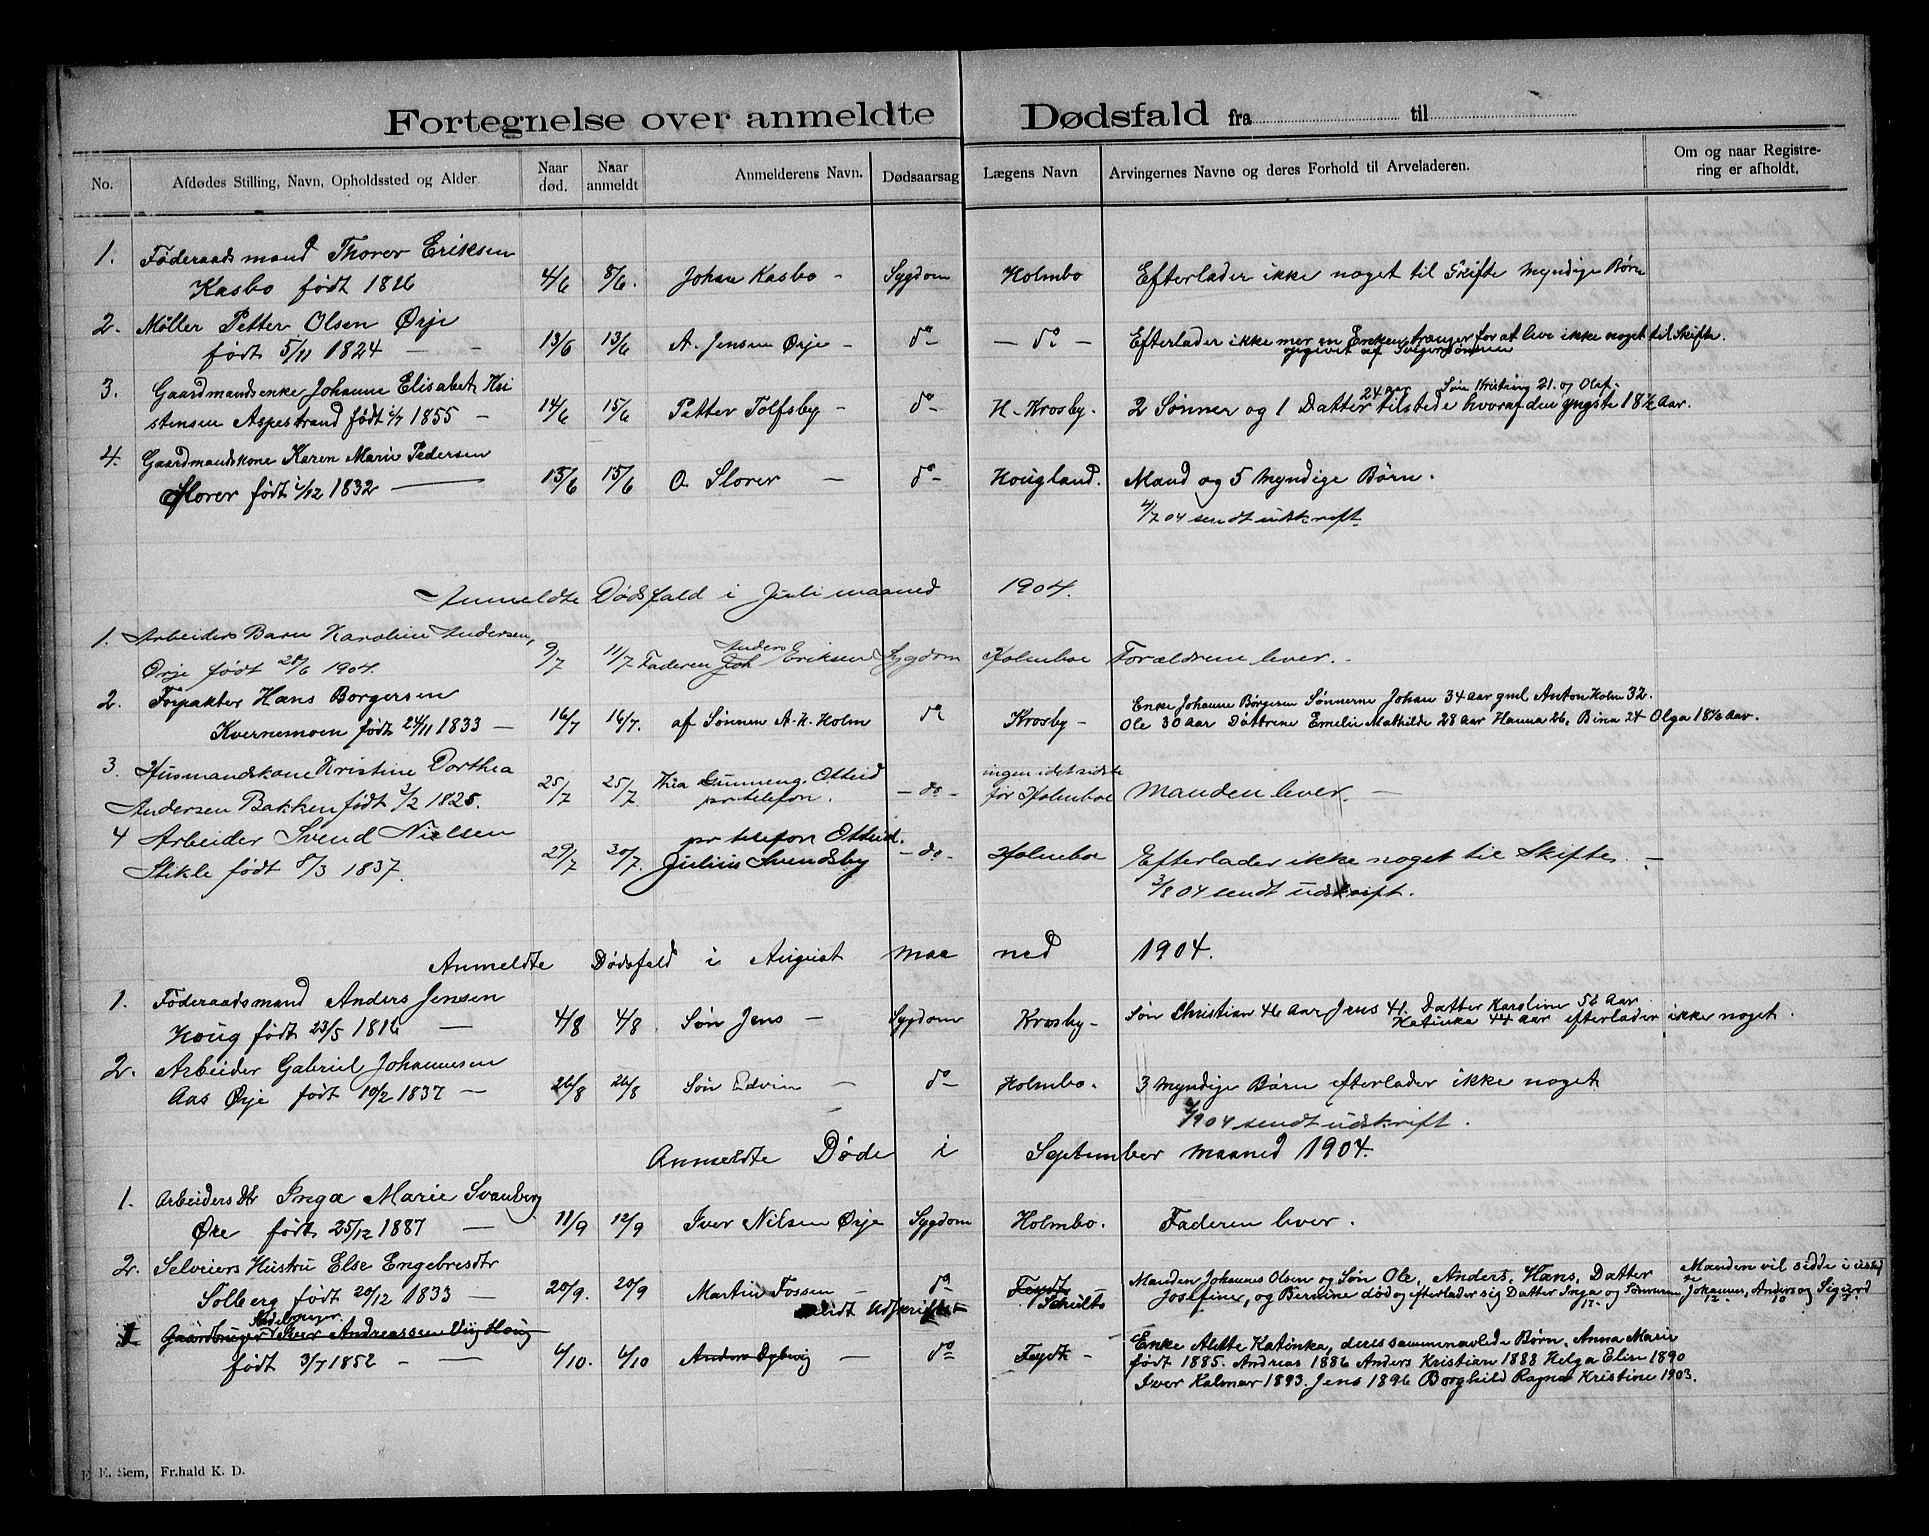 Fortegnelse over anmeldte Dødsfald fra til
No.
Afdødes Stilling, Navn, Opholdssted og Alder.
Naar død.
Naar anmeldt
Anmelderens Navn.
Dødsaarsag
Lægens Navn
Arvingernes Navne og deres Forhold til Arveladeren.
Om og naar Registrering er afholdt.
1. Føderaadsmand Thorer Eriksen
Kasbo født 1816 4/6 8/6. Johan Kasbo - Sygdom Holmbo Efterlader ikke noget til Skifte Myndige Børn
2. Møller Petter Olsen Ørje
født 5/11 1824 — - 13/6 13/6 A. Jensen Ørje - do - do - Efterlader ikke mer en Enken trænger for at leve ikke noget til Skifte.
opgivet af Svigersønnen
3. Gaardmandsenke Johanne Elisabet Kri
24 aar Søn Kristian 21. og Olaf.
stensen Aspestrand født 1/7 1855 - 14/6 15/6 Petter Tolfsby - do - H. Krosby. 2 Sønner og 1 Datter tilstede hvoraf den yngste 18½ Aar.
4. Gaardmandskone Karen Marie Pedersen
Slorer født 1/12 1832 — 13/6 15/6 O. Slorer - do - Hougland. Mand og 5 Myndige Børn.
4/7 04 sendt udskrift.
Anmeldte Dødsfald i Juli maaned 1904.
1. Arbeiders Barn Karoline Andersen,
Anders
Ørje født 28/6 1904. 9/7 11/7 Faderen Joh Eriksen Sygdom Holmboe Forældrene lever. -
2. Forpakter Hans Borgersen
Enke Johanne Børgersen Sønnerne Johan 34 Aar gml Anton Holm 32.
Kvernemoen født 24/11 1833 - 16/7 16/7. af Sønnen A. H. Holm do Krosby - Ole 30 Aar Døttrene Emelie Mathilde 28 Aar Hanna 26, Bina 24 Olga 18½ Aar.
3. Husmandskone Kristine Dorthea
ingen i det sidste
Andersen Bakken født 3/2 1825. 25/7 25/7 Thea Gunneng. Otteid - do - før Holmboe Manden lever. -
pr telefon.
4 Arbeider Svend Nielsen
pr telefon Otteid.
Stikle født 8/3 1837. 29/7 30/7. Julius Svendsby - do - Holmboe Efterlader ikke noget til Skifte. -
3/8 04 sendt udskrift.
Anmeldte Dødsfald i August maaned 1904.
1. Føderaadsmand Anders Jensen
Houg født 23/5 1816 - 4/8 4/8. Søn Jens - Sygdom Krosby - Søn Christian 46 Aar Jens 41. Datter Karoline 52 Aar
Katinka 44 Aar efterlader ikke noget.
2. Arbeider Gabriel Johannesen
Aas Ørje født 10/2 1837 - 26/8 26/8 Søn Edvin - do - Holmbo. 3 Myndige Børn efterlader ikke noget
2/9 04 sendt udskrift.
Anmeldte Døde i September maaned 1904.
1. Arbeiders Dtr Inga Marie Svanberg
Øre født 25/12 1887 - 11/9 12/9 Iver Nilsen Ørje Sygdom Holmbo. Faderen lever.
2. Selveiers Hustru Else Engebresdtr
Solberg født 20/12 1833 - 20/9. 20/9 Martin Fossen - do - Feydt Schults Manden Johannes Olsen og Søn Ole, Anders, Hans, Datter
Josefine, og Bernine død og efterlader sig Datter Inga og Sønnerne
17.
Manden vil sidde i uskif
Johannes, Anders og Sigurd
12. 10 7
Sendt Udskrift
1 Gaardbruger Iver Andreassen Houg
født 3/7 1852 - — 4/10. 4/10 Anders Dybvig - do Feydt - Enke Alette Katinka, deres sammenavlede Børn. Anna Marie
født 1885. Andreas 1886 Anders Kristian 1888 Helga Elise 1890
Iver Kalmar 1893. Jens 1896 Borghild Ragna Kristine 1903.
E. Sem, Fr.hald K. D.